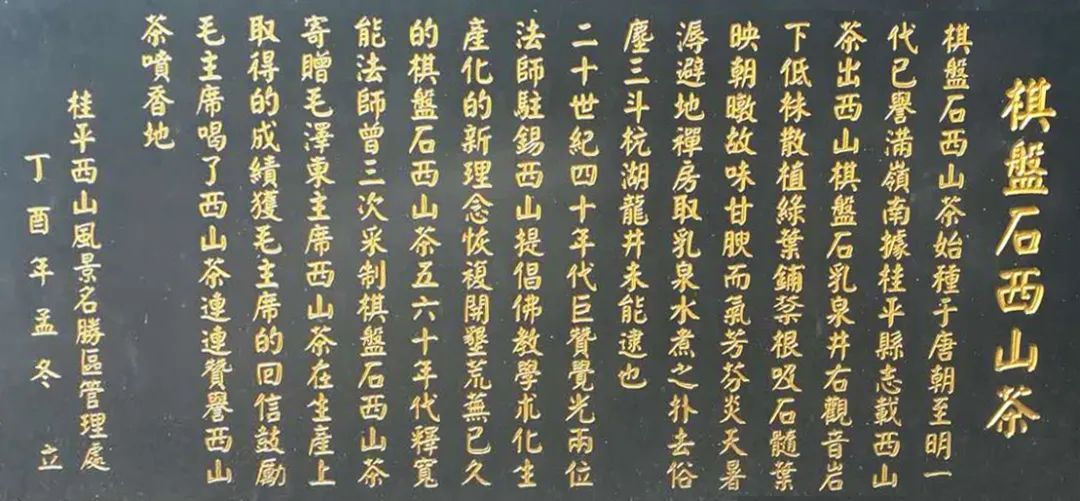 棋盤石西山茶
棋盤石西山茶始種于唐朝至明一
代已譽满嶺南據桂平縣志載西山
茶出西山棋盤石乳泉井右觀音岩
下低株散植綠葉鋪棻根吸石髓葉
映朝暾故味甘腴而氣芳芬炎天暑
溽避地禪房取乳泉水煮之扑去俗
塵三斗杭湖龍井未能逮也
二十世紀四十年代巨贊覺光兩位
法師駐錫西山提倡佛教學术化生
產化的新理念恢複開墾荒蕪已久
的棋盤石西山茶五六十年代釋寬
能法師曾三次采制棋盤石西山茶
寄贈毛澤東主席西山茶在生產上
取得的成績獲毛主席的回信鼓勵
毛主席喝了西山茶連連贊譽西山
茶噴香地
桂平西山風景名勝區管理處
丁酉年孟冬 立